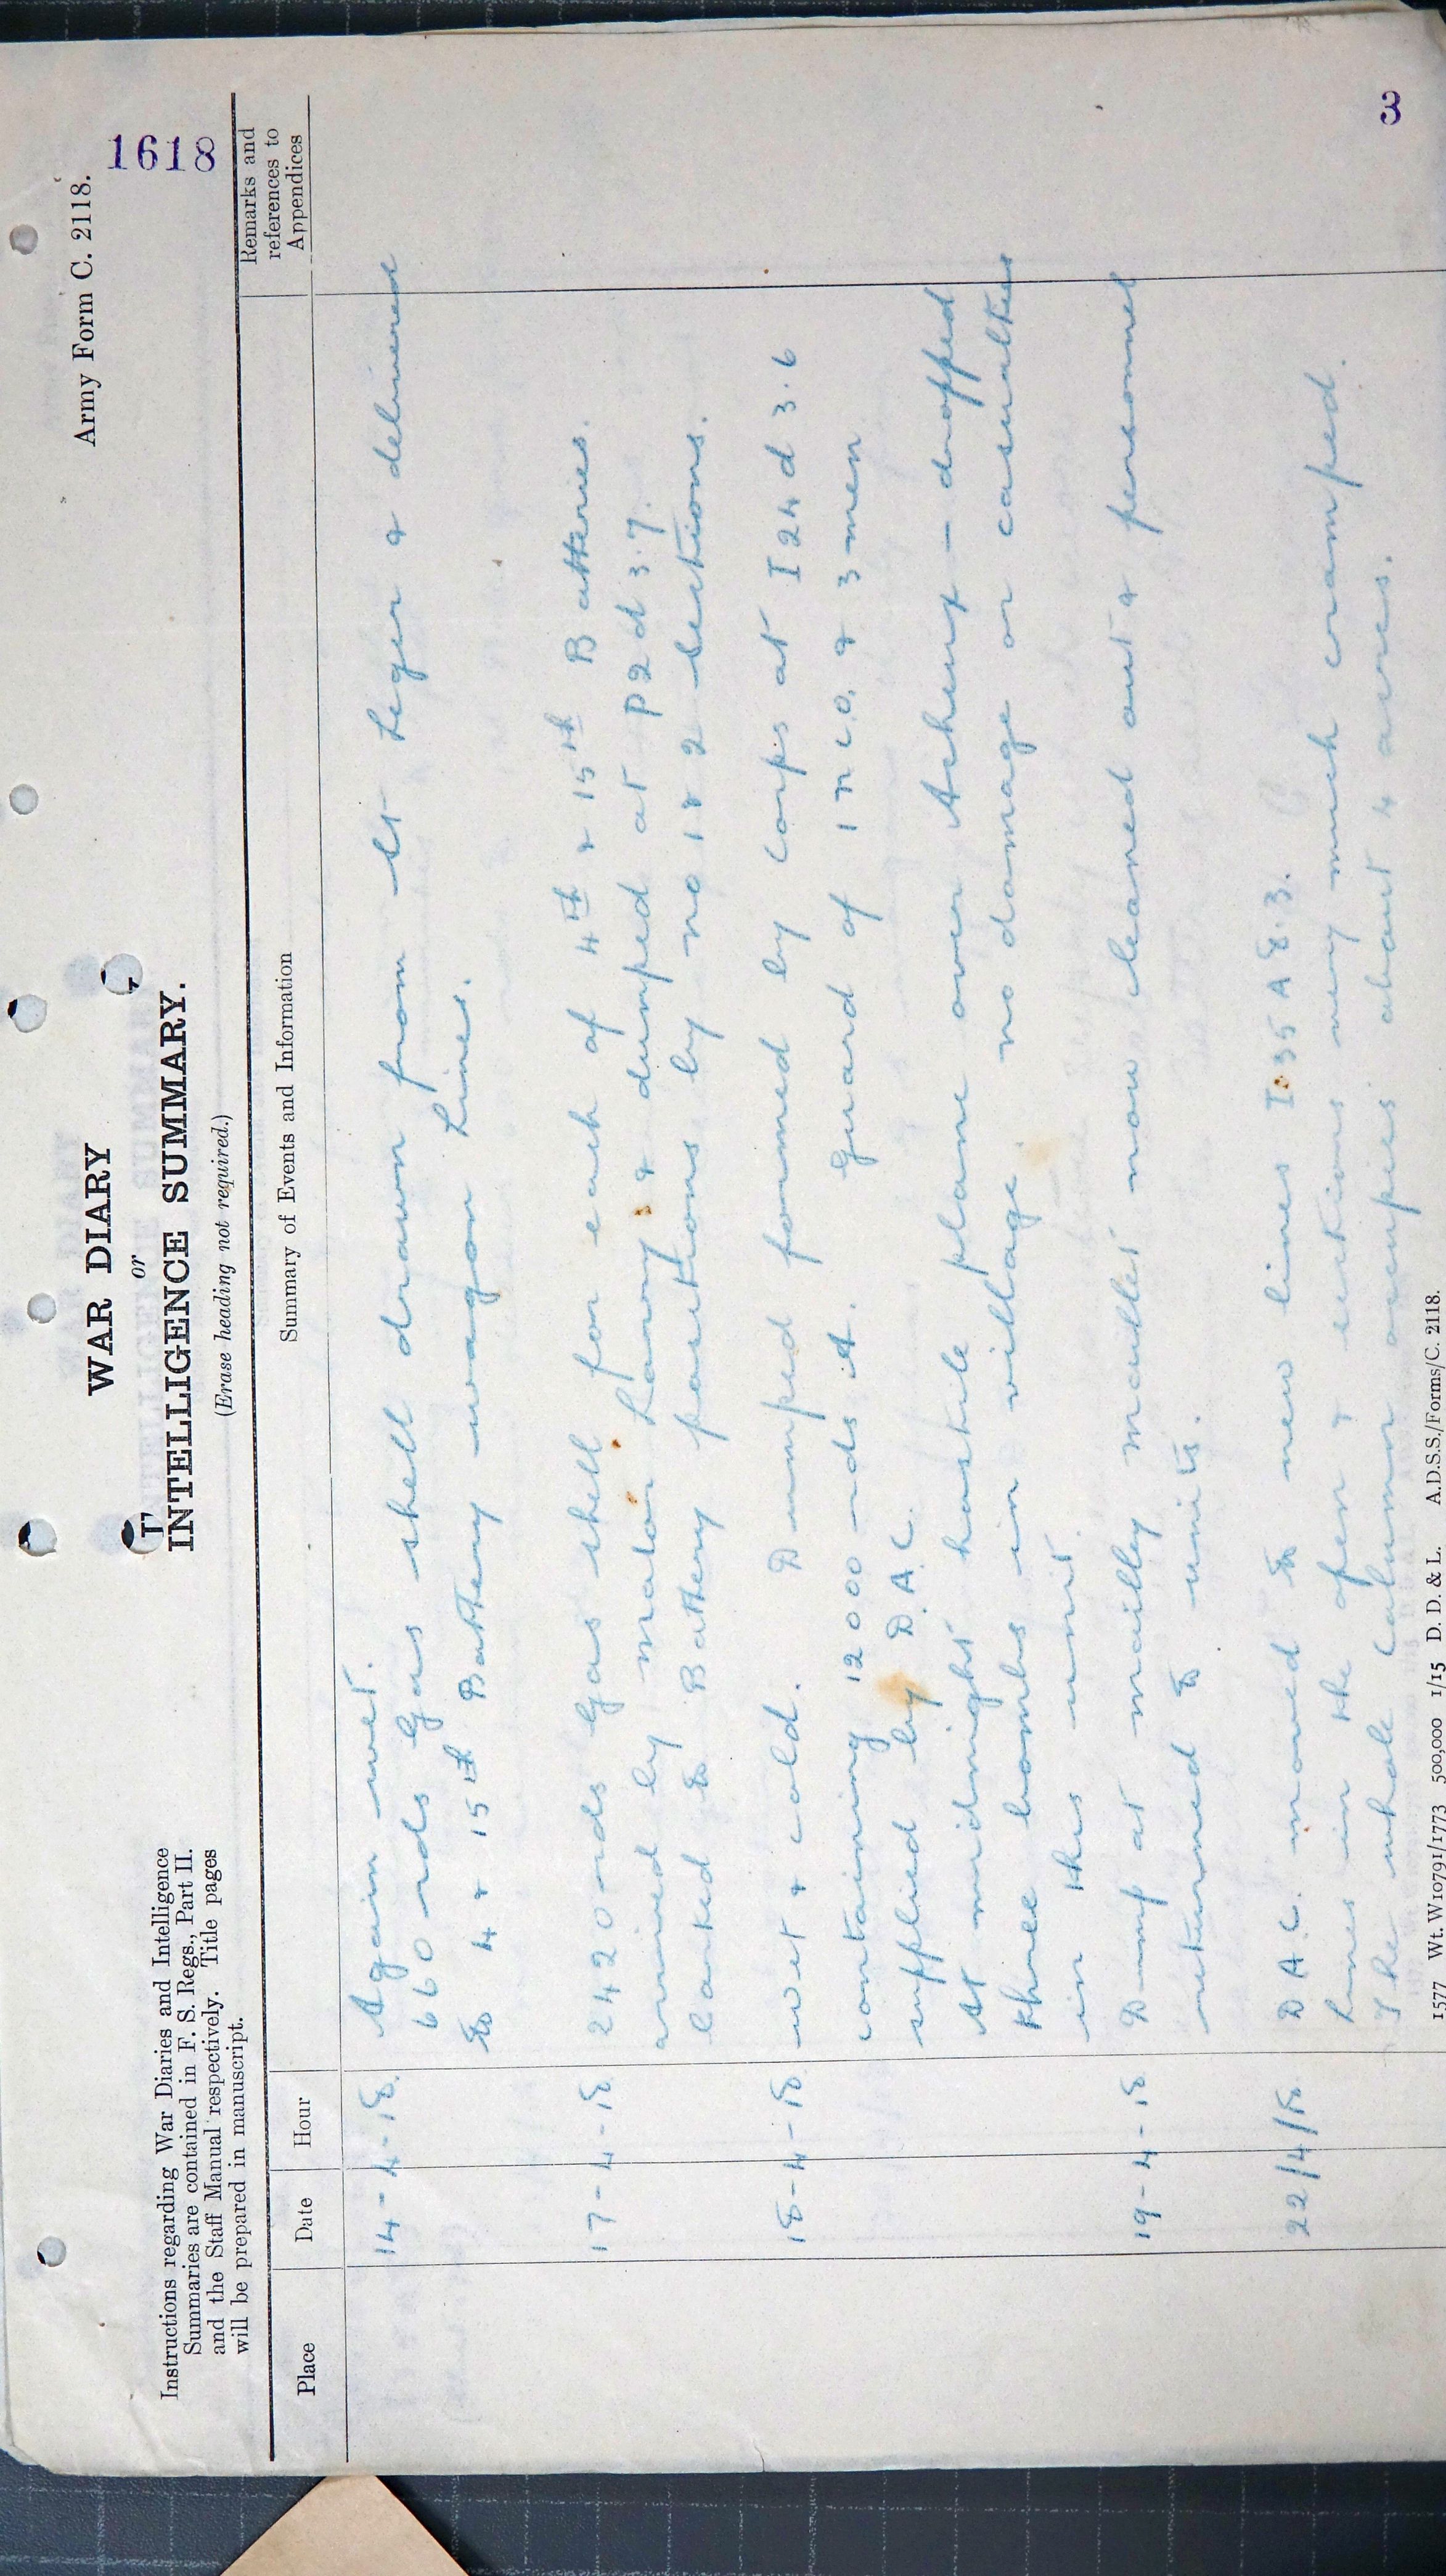 Army Form C. 2118.
1618
WAR DIARY
or
INTELLIGENCE SUMMARY.
(Erase heading not required.)
Instructions regarding War Diaries and Intelligence
Summaries are contained in F. S. Regs., Part II.
and the Staff Manual respectively. Title pages
will be prepared in manuscript.
Place Date Hour Summary of Events and Information Remarks and references to Appendices
14-4-18. Again wet.
660 rds Gas shell drawn from St Leger & delivered
to 4 & 15th Battery wagon Lines.
17-4-18 2420 rds Gas shell for each of 4th & 15th Batteries.
arrived by motor Lorry & dumped at P2d 3.7.
Carted to Battery positions by no 1 & 2 Sections.
18-4-18 wet & cold. Dumped formed by Corps at I 24 d 3.6
containing 12000 rds A. Guard of 1 N.C.O. & 3 men
supplied by D.A.C.
At midnight hostile plane over Acheux – dropped
three bombs in village no damage or casualties
in this unit.
19-4-18 Dump at mailly maillet now cleaned out & personnel
returned to units.
22/4/18 D.A.C. moved to new lines I 35 A 8.3.
Lines in the open & sections very much cramped.
The whole Column occupies about 4 acres.
1577 Wt. W10791/1773 500,000 1/15 D. D. & L. A.D.S.S./Forms/C. 2118.
3